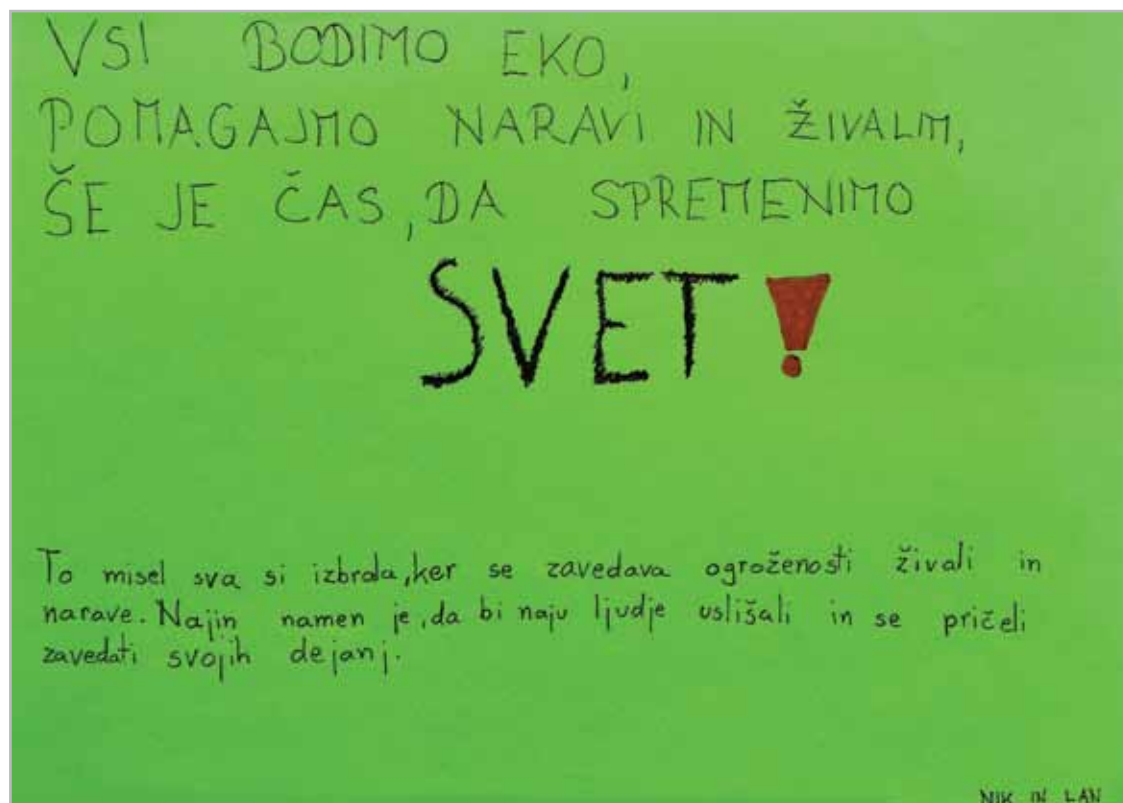 VSI BODIMO EKO,
POMAGAJMO NARAVI IN ŽIVALIM,
ŠE JE ČAS, DA SPREMENIMO
SVET!
To misel sva si izbrala, ker se zavedava ogroženosti živali in
narave. Najin namen je, da bi naju ljudje uslišali in se pričeli
zavedati svojih dejanj.
NIK IN LAN